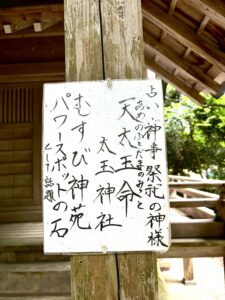 占い・神事 祭祀の神様
あめのふとだまのみこと
天太玉命
太玉神社
むすび神苑
パワースポットの石
として話題